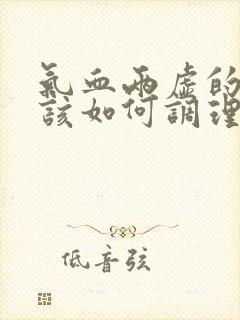 氣血兩虛的
該如何調理
低音弦